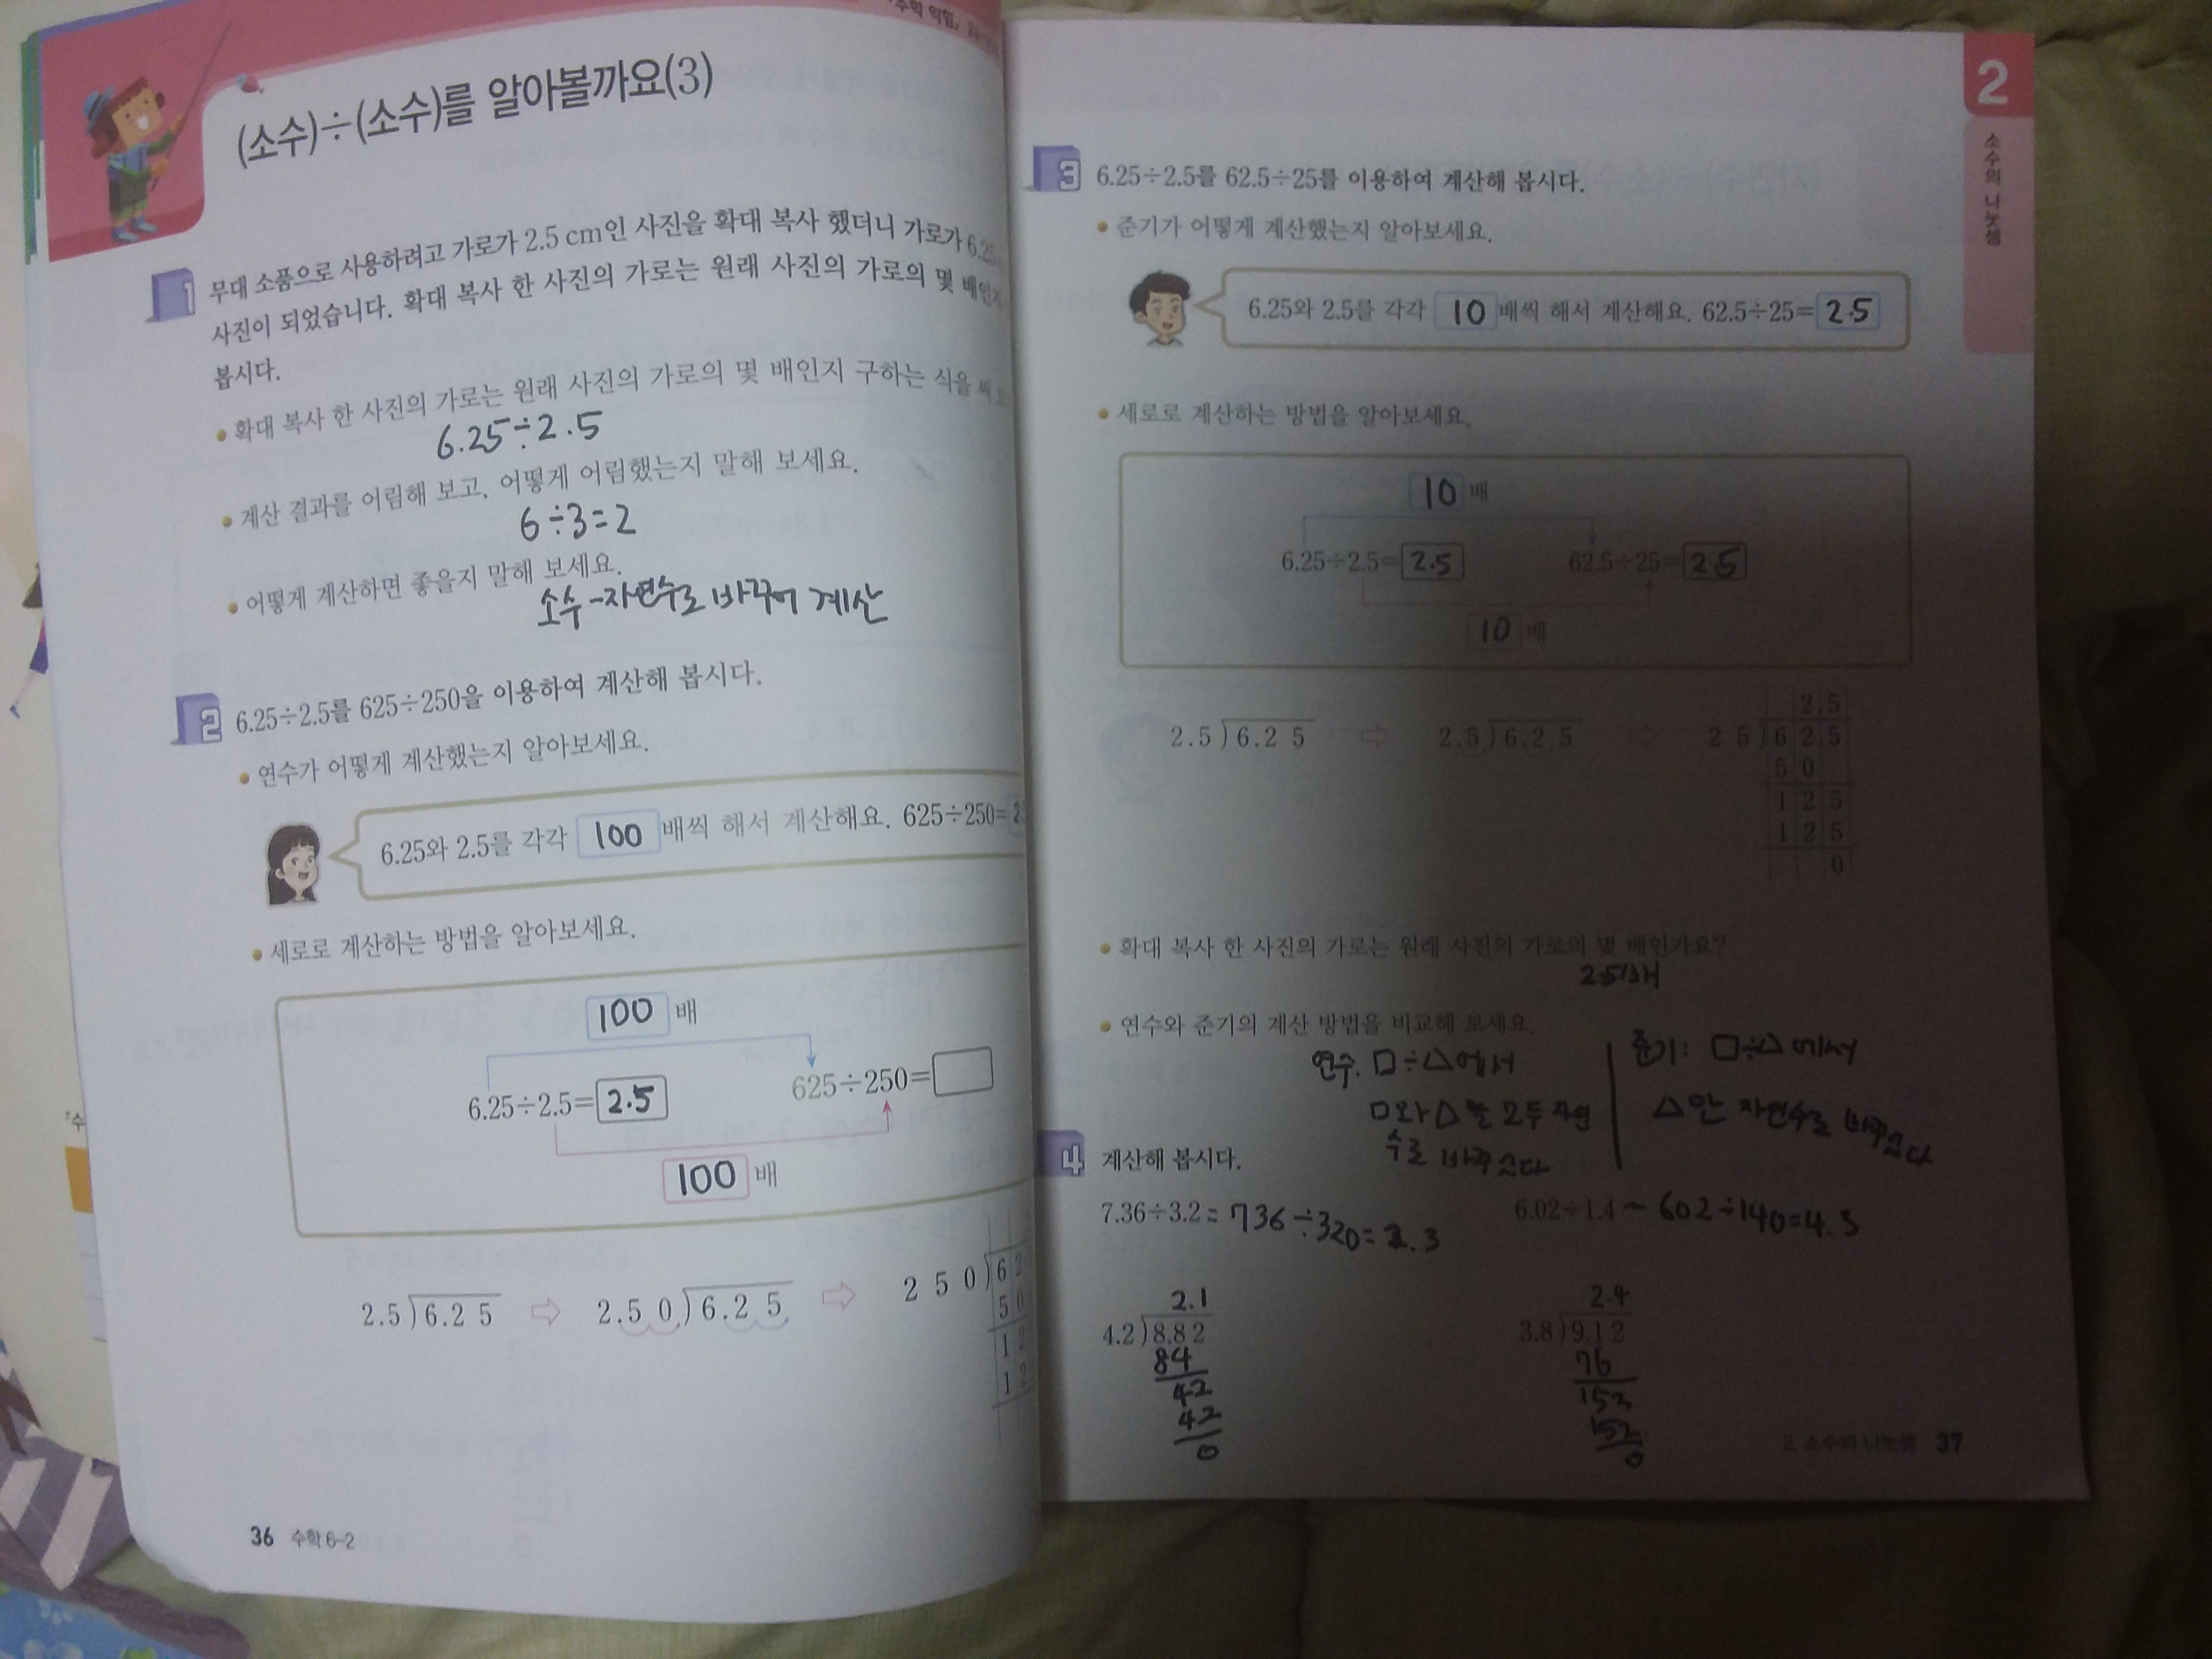 「수학 익힘」
(소수)÷(소수)를 알아볼까요(3)
1 무대 소품으로 사용하려고 가로가 2.5 cm인 사진을 확대 복사 했더니 가로가 6.25
사진이 되었습니다. 확대 복사 한 사진의 가로는 원래 사진의 가로의 몇 배인지
봅시다.
확대 복사 한 사진의 가로는 원래 사진의 가로의 몇 배인지 구하는 식을 써
6.25÷2.5
계산 결과를 어림해 보고, 어떻게 어림했는지 말해 보세요.
6÷3=2
어떻게 계산하면 좋을지 말해 보세요.
소수-자연수로 바꾸어 계산
2 6.25÷2.5를 625÷250을 이용하여 계산해 봅시다.
연수가 어떻게 계산했는지 알아보세요.
6.25와 2.5를 각각 100 배씩 해서 계산해요. 625÷250=
세로로 계산하는 방법을 알아보세요.
100 배
6.25÷2.5=2.5 625÷250=
100 배
2.5)6.2 5 ⇨ 2.5 0)6.2 5 ⇨ 2 5 0)6 2
5 0
1 2
1 2
36 수학 6-2
2
소수의 나눗셈
3 6.25÷2.5를 62.5÷25를 이용하여 계산해 봅시다.
준기가 어떻게 계산했는지 알아보세요.
6.25와 2.5를 각각 10 배씩 해서 계산해요. 62.5÷25=2.5
세로로 계산하는 방법을 알아보세요.
10 배
6.25÷2.5=2.5 62.5÷25=2.5
10 배
2.5
2.5)6.2 5 ⇨ 2.5)6.2 5 ⇨ 2 5)6 2.5
5 0
1 2 5
1 2 5
0
확대 복사 한 사진의 가로는 원래 사진의 가로의 몇 배인가요?
2.5배
연수와 준기의 계산 방법을 비교해 보세요.
연수. □÷△에서
□와 △를 모두 자연
수로 바꾸었다
준기: □÷△에서
△만 자연수로 바꾸었다
4 계산해 봅시다.
7.36÷3.2=736÷320=2.3
6.02÷1.4=602÷140=4.3
2.1
4.2)8.8 2
84
42
42
0
2.4
3.8)9.1 2
76
152
152
0
2. 소수의 나눗셈 37